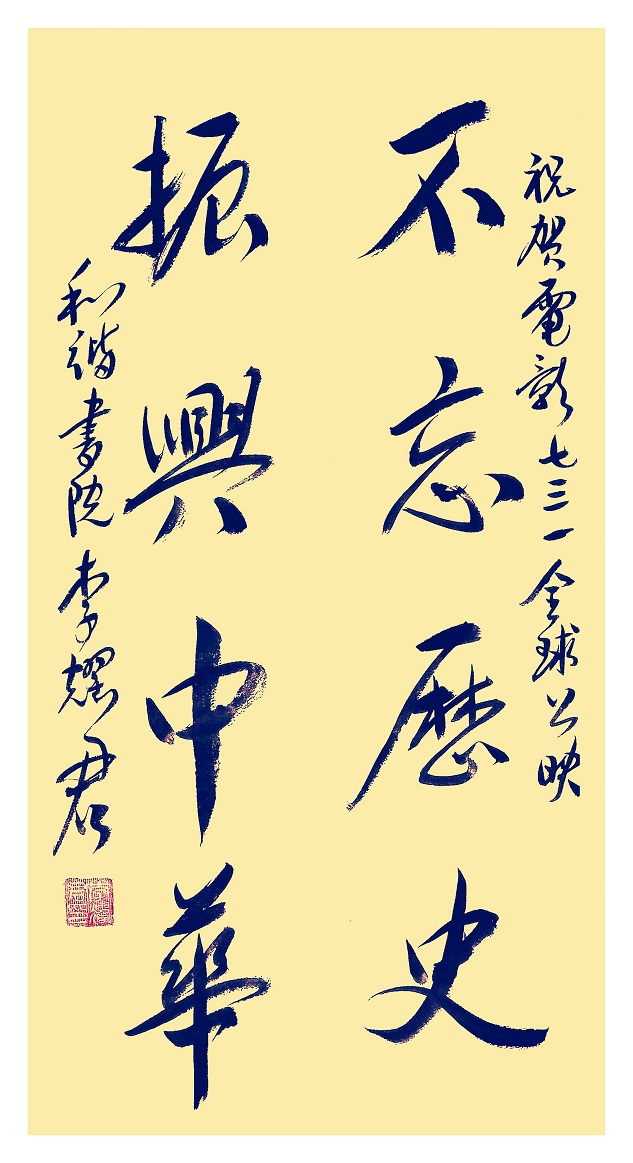 祝贺電影七三一全球公映
不忘歷史
振興中華
和谐書院李耀君